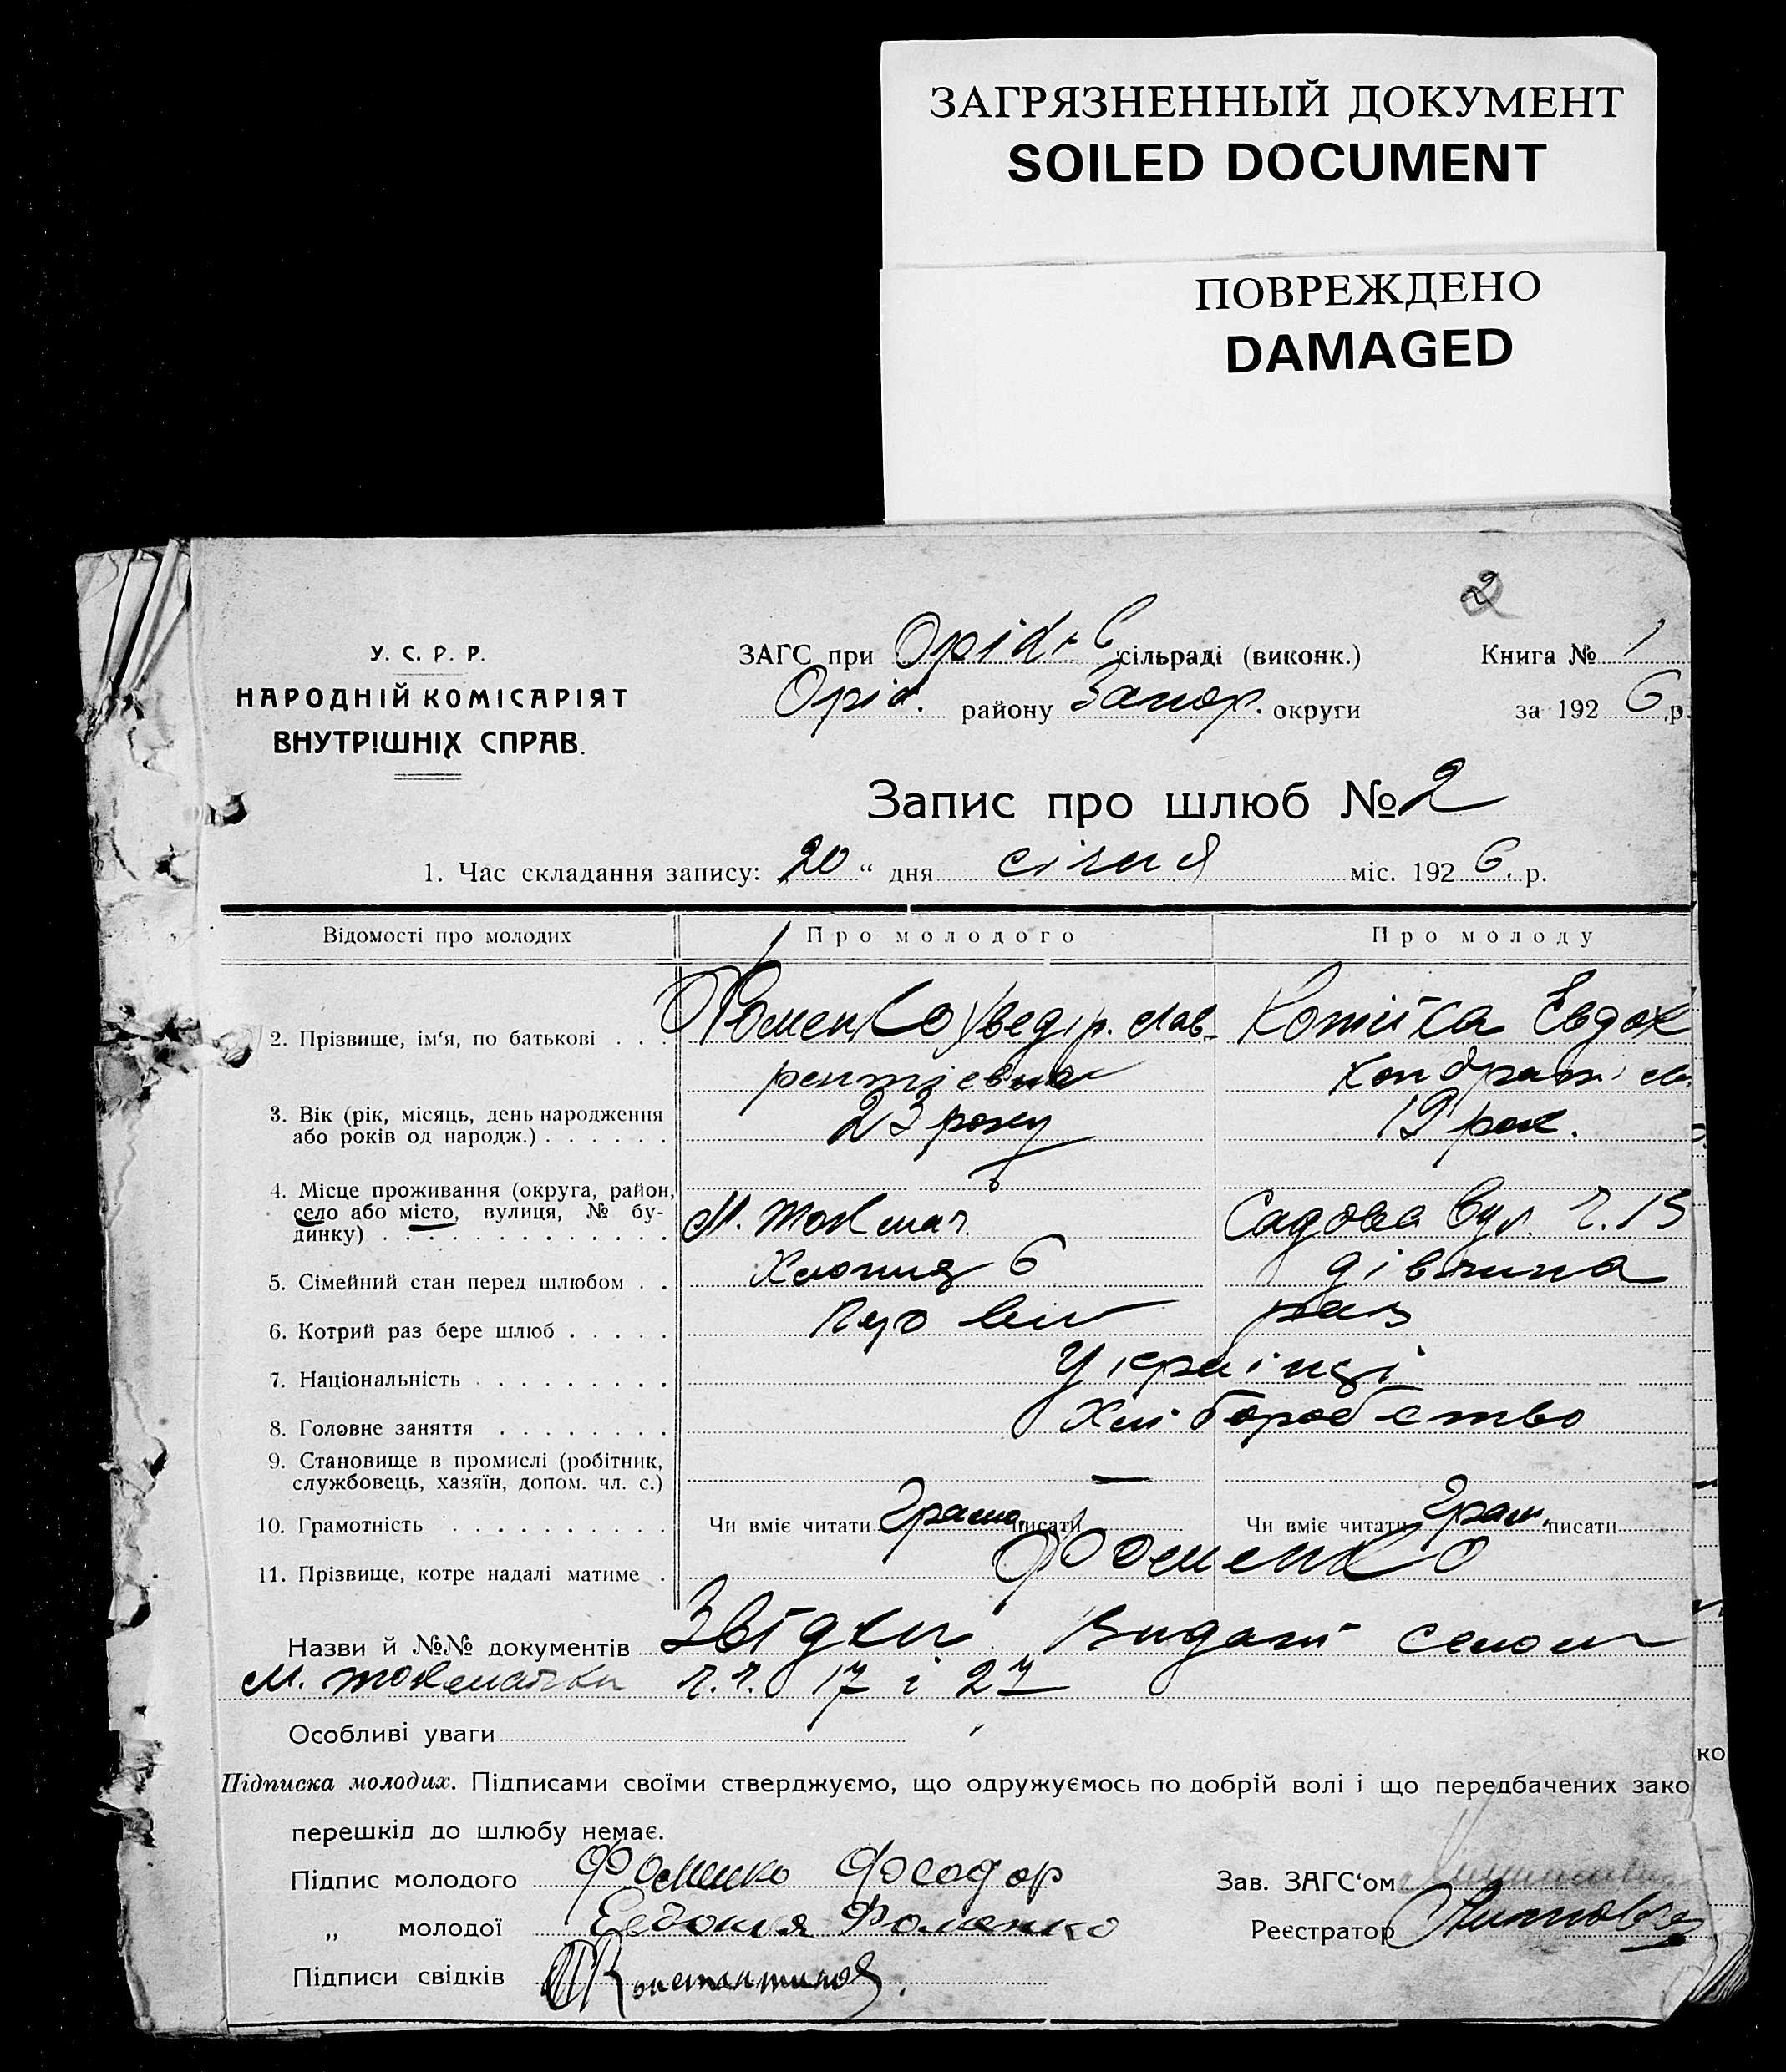 ЗАГРЯЗНЕННЫЙ ДОКУМЕНТ
SOILED DOCUMENT
ПОВРЕЖДЕНО
DAMAGED
2
У. С. Р. Р.
НАРОДНІЙ КОМІСАРІЯТ
ВНУТРІШНІХ СПРАВ.
ЗАГС при сільраді (виконк.)
Оріх. району Запор. округи
Книга № 1
за 1926 р.
Запис про шлюб № 2
1. Час складання запису: 20 “ дня січня міс. 1926. р.
Відомості про молодих Про молодого Про молоду
2. Прізвище, ім‘я, по батькові . . . Фоменко Хведір. Лав- Євдок
рентієвич Кондрат
3. Вік (рік, місяць, день народження 23 року 19 рок.
або років од народж.) . . . . . .
4. Місце проживання (округа, район,
село або місто, вулиця, № бу- М. Токмач. Садова вул. ч. 13
динку) . . . . . . . . . . . . .
5. Сімейний стан перед шлюбом . . Хлопця б дівчина
6. Котрий раз бере шлюб . . . . . раз
7. Національність . . . . . . . . . Українці
8. Головне заняття . . . . . . . . Хліборобство
9. Становище в промислі (робітник,
службовець, хазяїн, допом. чл. с.) —
10. Грамотність . . . . . . . . . . Чи вміє читати Грамо. писати Чи вміє читати Грам. писати
11. Прізвище, котре надалі матиме . Фоменко
Назви й №№ документів Звідки Видані селом
М. Токмачки ч.ч. 17 і 27
Особливі уваги
Підписка молодих. Підписами своїми стверджуємо, що одружуємось по добрій волі і що передбачених зако
ко
перешкід до шлюбу немає.
Підпис молодого Фоменко Феодор
Зав. ЗАГС‘ом
„ молодої Евдокия Фоменко
Реєстратор
Підписи свідків Константинов.